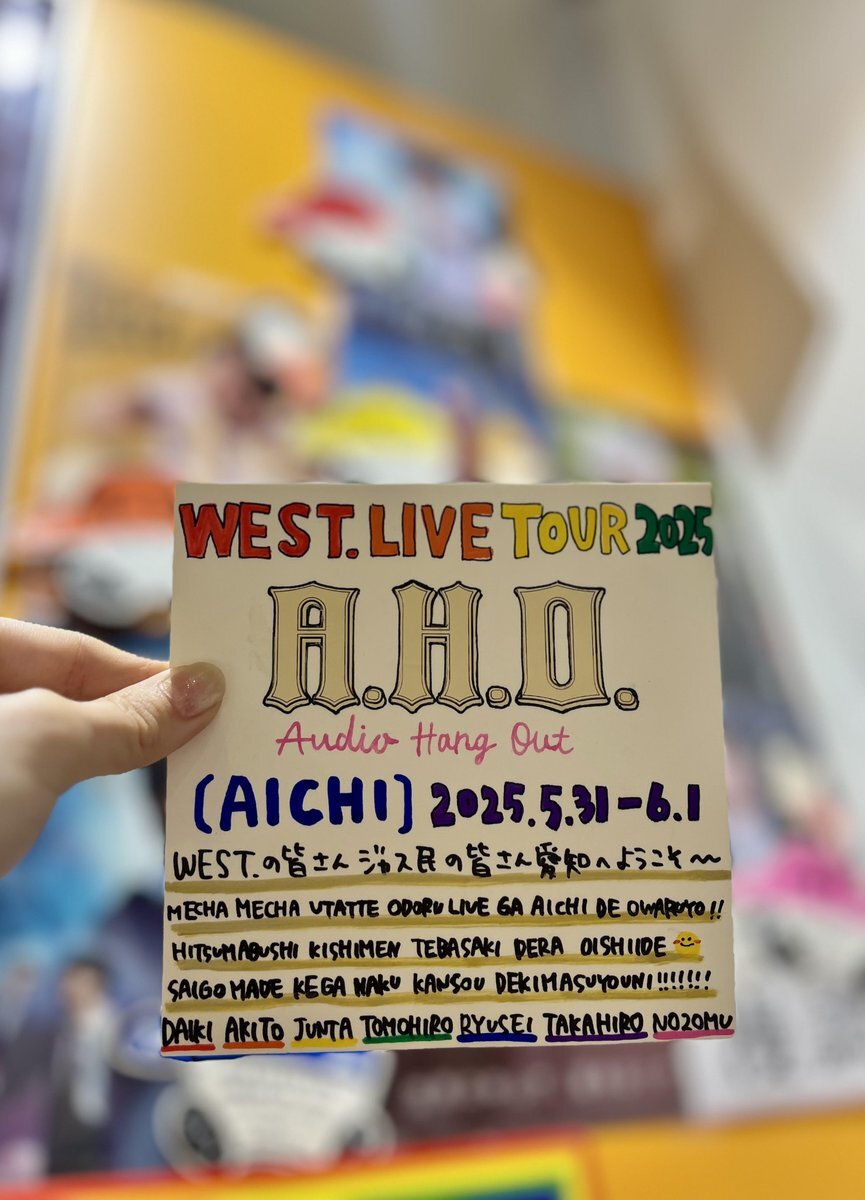 WEST. LIVE TOUR 2025
A.H.O.
Audio Hang Out
[AICHI] 2025.5.31-6.1
WEST.の皆さんジャス民の皆さん愛知へようこそ〜
MECHA MECHA UTATTE ODORU LIVE GA AICHI DE OWARUYO!!
HITSUMABUSHI KISHIMEN TEBASAKI DERA OISHIIDE
SAIGO MADE KEGA NAKU KANSOU DEKIMASUYOUNI!!!!!!!
DAIKI AKITO JUNTA TOMOHIRO RYUSEI TAKAHIRO NOZOMU